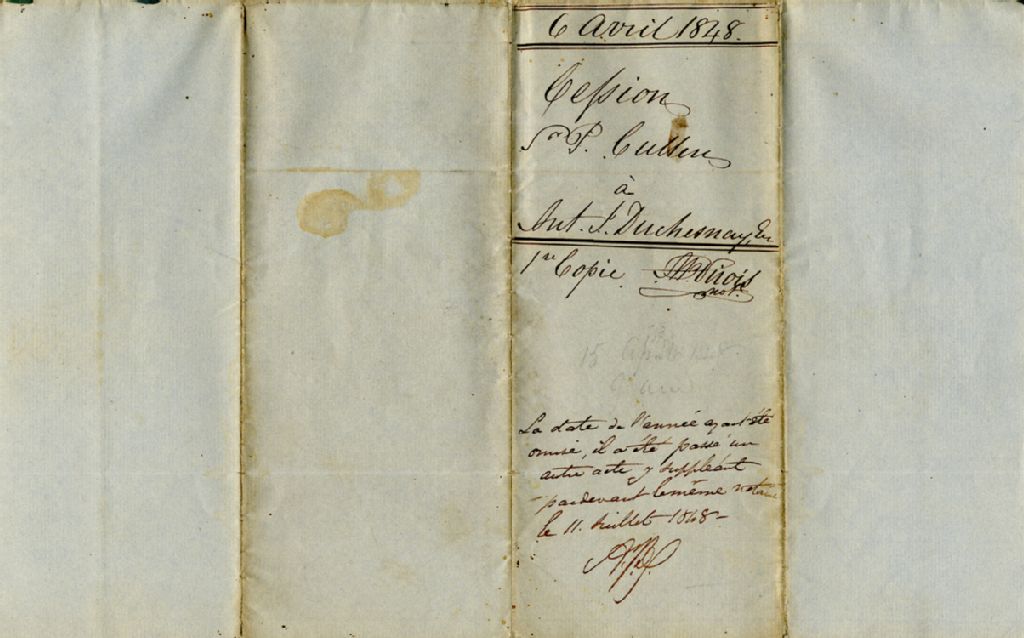 6 Avril 1848.
Cession
Sr. P. Cullen
à
Ant. J. Duchesnay, Er
1re Copie
not.
15
La date de l'année ayant été
omise, il a été passé un
autre acte y suppléant
pardevant le même notaire
le 11. Juillet 1848 -